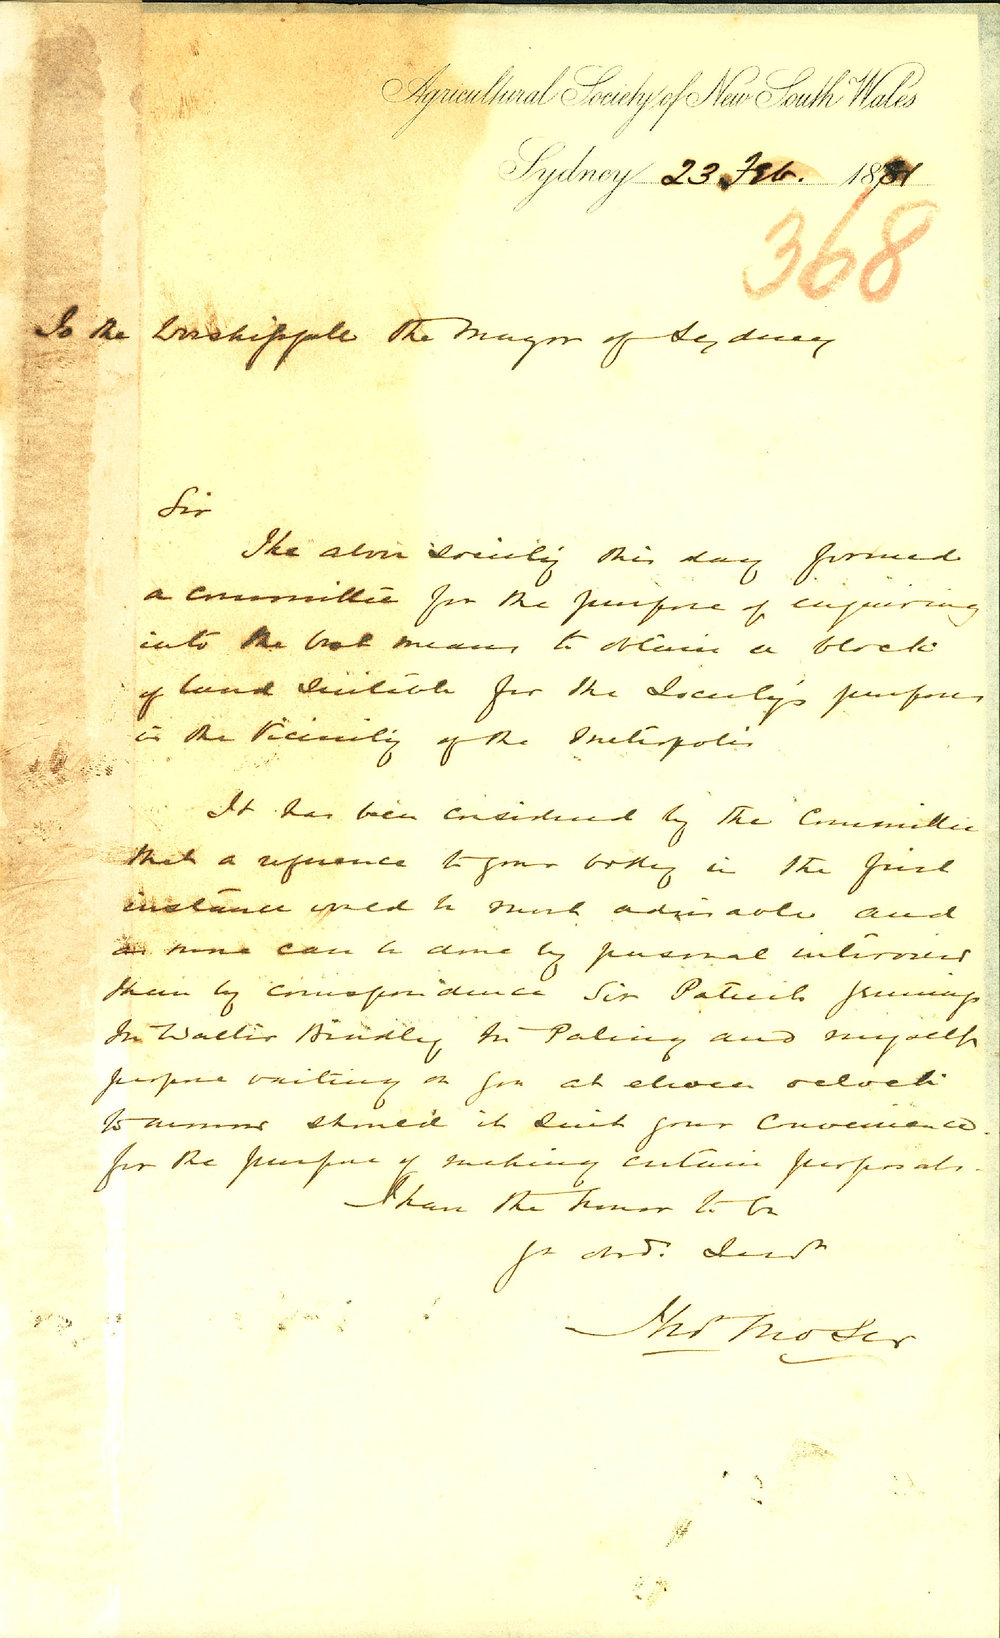 Agricultural Society of New South Wales
Sydney 23 Feb. 1881
368
To the Worshipfule the Mayor of Sydney
Sir
The above Society this day formed
a committee for the purpose of enquiring
into the best means to obtain a block
of land suitable for the Society's purposes
in the Vicinity of the Metropolis
It has been considered by the Committee
that a reference to your body in the first
instance would be most advisable and
as more can be done by personal interview
than by correspondence Sir Patrick Jennings
Mr Walter Hindley Mr Paling and myself
propose waiting on you at eleven oclock
to morrow should it suit your Convenience
for the purpose of making certain proposals.
I have the honor to be
yr obdt. Servt